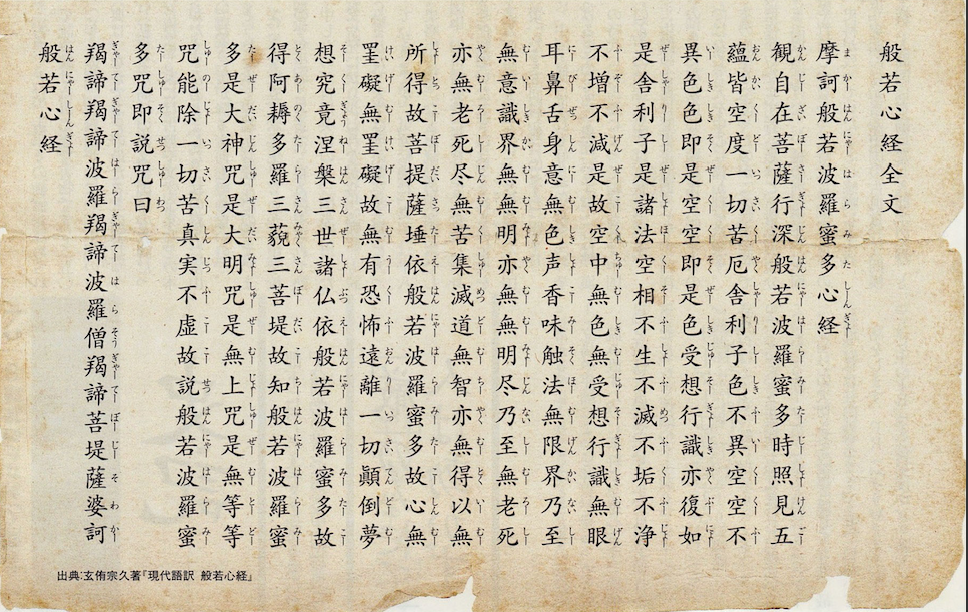 般若心経全文
摩訶般若波羅蜜多心経
観自在菩薩行深般若波羅蜜多時照見五
蘊皆空度一切苦厄舎利子色不異空空不
異色色即是空空即是色受想行識亦復如
是舎利子是諸法空相不生不滅不垢不浄
不増不減是故空中無色無受想行識無眼
耳鼻舌身意無色声香味触法無限界乃至
無意識界無無明亦無無明尽乃至無老死
亦無老死尽無苦集滅道無智亦無得以無
所得故菩提薩埵依般若波羅蜜多故心無
罣礙無罣礙故無有恐怖遠離一切顛倒夢
想究竟涅槃三世諸仏依般若波羅蜜多故
得阿耨多羅三藐三菩堤故知般若波羅蜜
多是大神咒是大明咒是無上咒是無等等
咒能除一切苦真実不虚故説般若波羅蜜
多咒即説咒曰
羯諦羯諦波羅羯諦波羅僧羯諦菩堤薩婆訶
般若心経
出典:玄侑宗久著『現代語訳 般若心経』